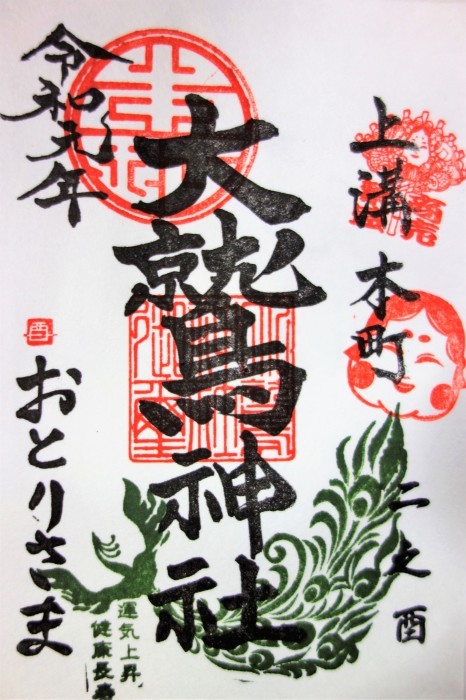 上溝本町
二之酉
大鷲神社
令和元年
酉
おとりさま
運気上昇
健康長寿